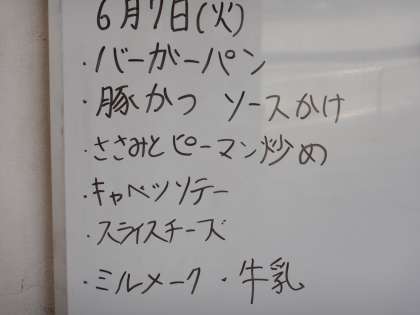 6月7日(火)
・バーガーパン
・豚かつ ソースかけ
・ささみとピーマン炒め
・キャベツソテー
・スライスチーズ
・ミルメーク ・牛乳